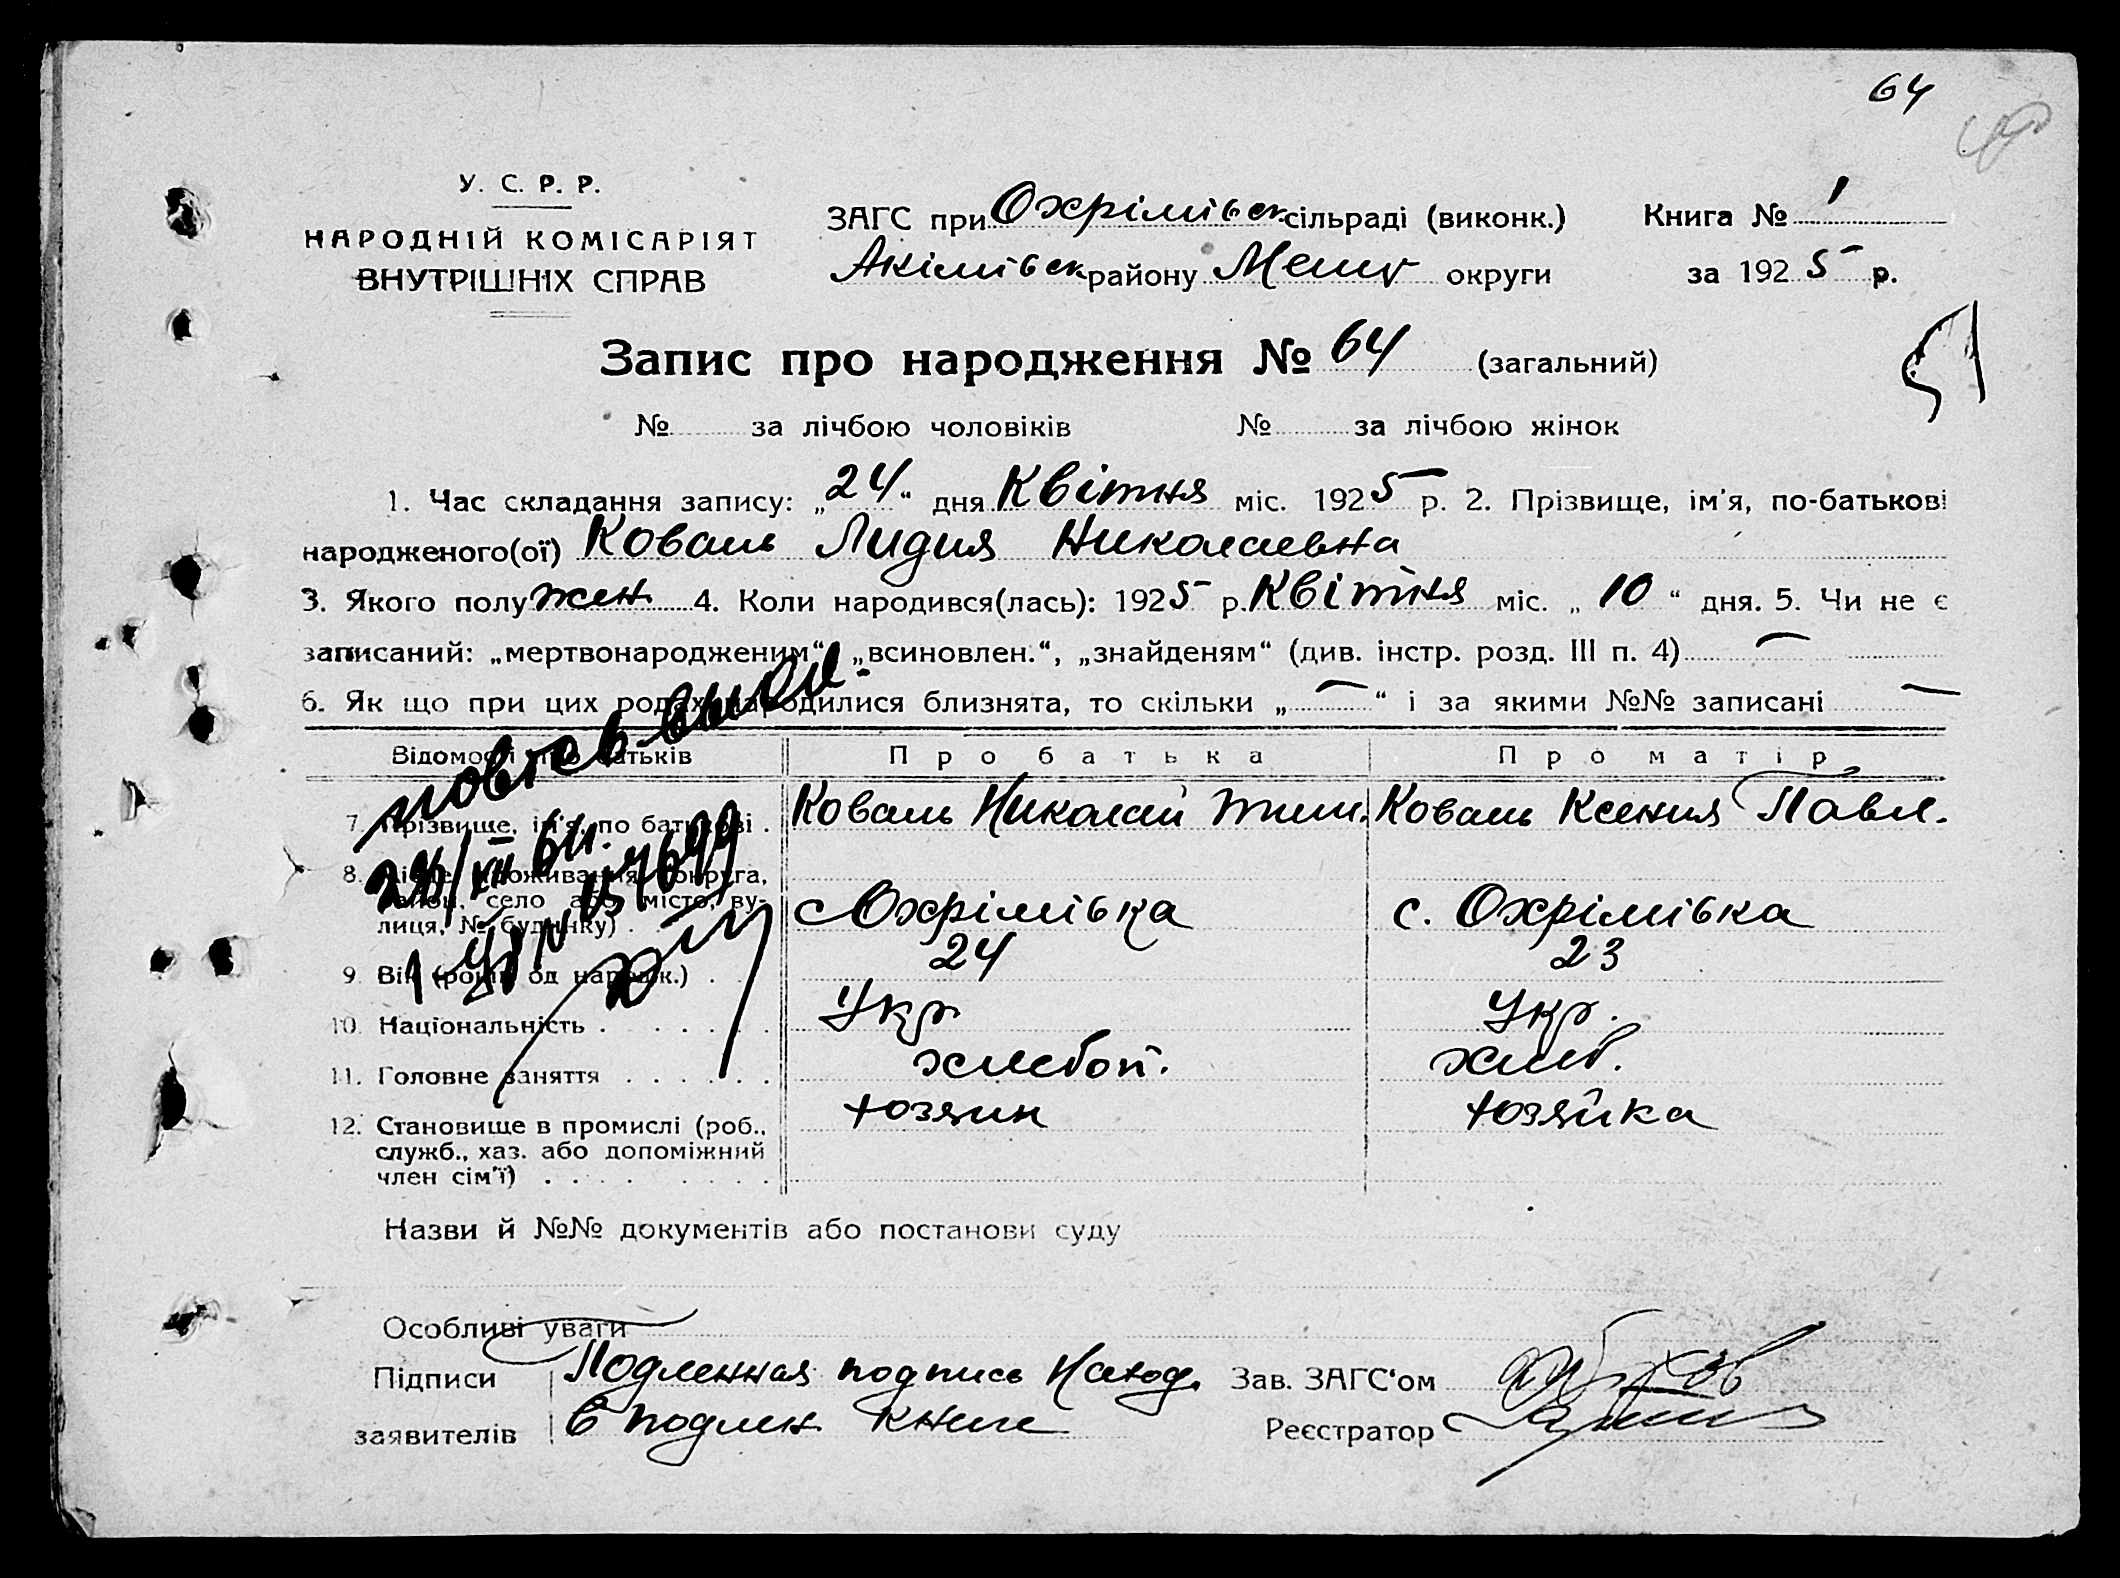 64
У. С. Р. Р.
НАРОДНІЙ КОМІСАРІЯТ
ВНУТРІШНІХ СПРАВ
ЗАГС при Охрімівськ сільраді (виконк.) Книга № 1
Акімівськ району Мелит округи за 1925 р.
Запис про народження № 64 (загальний)
№ за лічбою чоловіків № за лічбою жінок
1. Час складання запису: „24“ дня Квітня міс. 1925 р. 2. Прізвище, ім'я, по-батькові
народженого(ої) Коваль Лидия Николаевна
3. Якого полу жен. 4. Коли народився(лась): 1925 р. Квітня міс. „10“ дня. 5. Чи не є
записаний: „мертвонародженим“, „всиновлен.“, „знайденям“ (див. інстр. розд. III п. 4) —
6. Як що при цих родах народилися близнята, то скільки „—“ і за якими №№ записані —
Відомості про батьків Про батька Про матір
7. Прізвище, ім'я, по батькові . Коваль Николай Тим. Коваль Ксения Павл.
8. Місце проживання (округа,
район, село або місто, ву-
лиця, № будинку) . с Охрімівка с. Охрімівка
9. Вік (років од народж.) . . 24 23
10. Національність . . . . . . Укр Укр.
11. Головне заняття . . . . . . хлебоп. хлеб.
12. Становище в промислі (роб., хозяин хозяйка
служб., хаз. або допоміжний
член сім'ї) . . . . . . . . .
повт. выдл.
Назви й №№ документів або постанови суду
Особливі уваги
Підписи Подленная подпись наход. Зав. ЗАГС'ом
заявителів в подлен книге Реєстратор